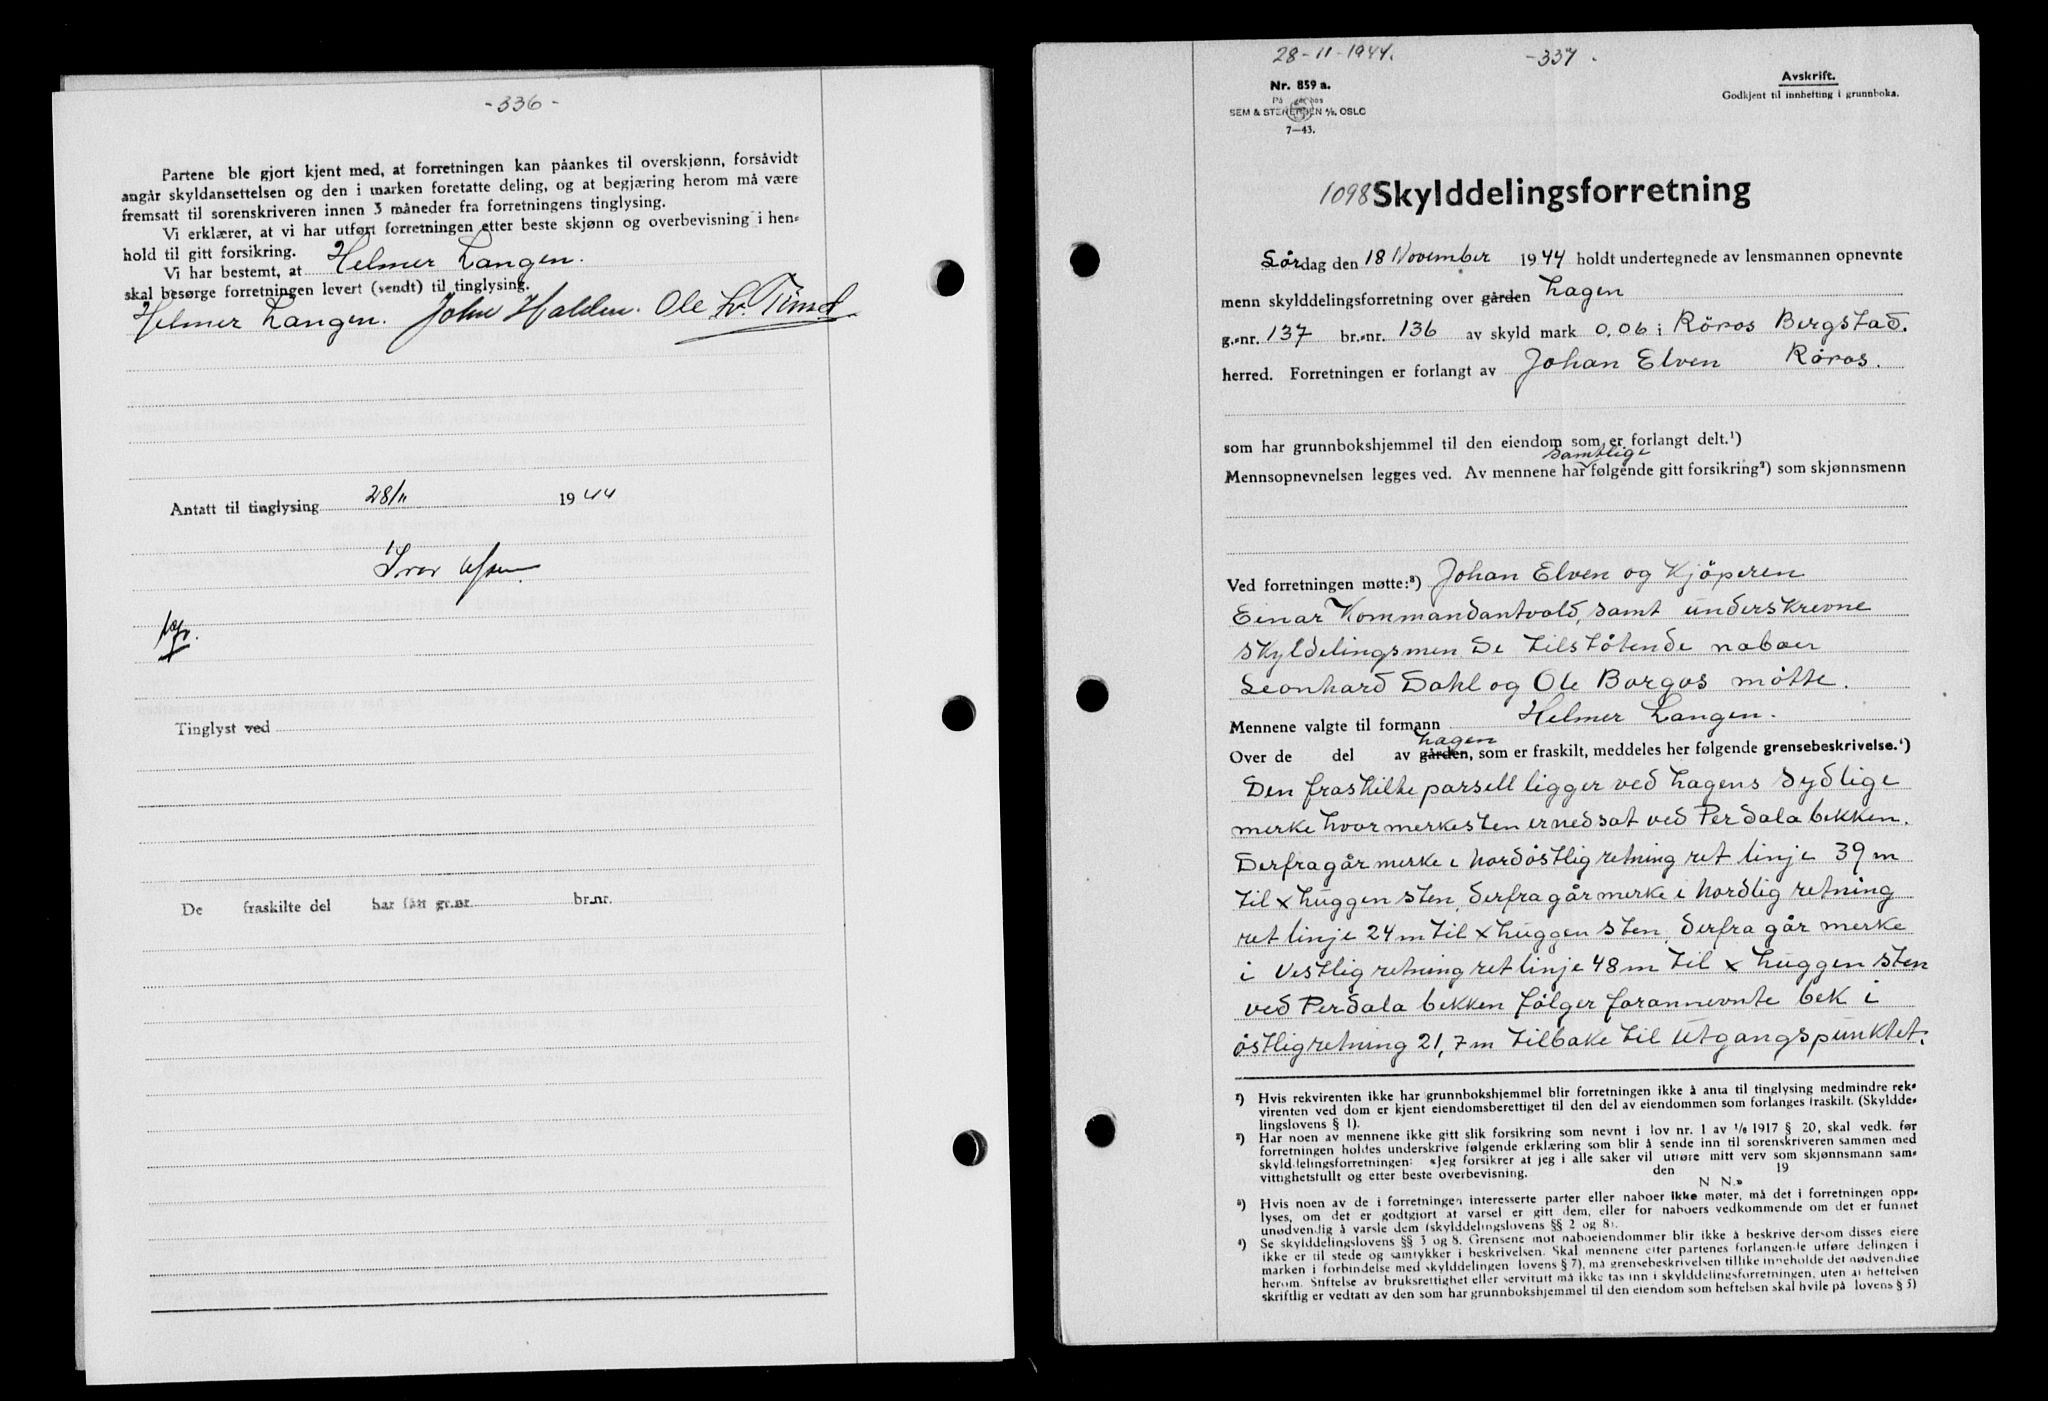 -336-
Partene ble gjort kjent med, at forretningen kan påankes til overskjønn, forsåvidt
angår skyldansettelsen og den i marken foretatte deling, og at begjæring herom må være
fremsatt til sorenskriveren innen 3 måneder fra forretningens tinglysing.
Vi erklærer, at vi har utført forretningen etter beste skjønn og overbevisning i hen-
hold til gitt forsikring.
Vi har bestemt, at Helmer Langen.
skal besørge forretningen levert (sendt) til tinglysing.
Helmer Langen. John Halden. Ole
Antatt til tinglysing 28/11 1944
Tinglyst ved
De fraskilte del har fått gr.nr. br.nr.
28-11-1944. -337.
Nr. 859 a.
SEM & STENERSEN A/S, OSLO
7-43.
Avskrift.
Godkjent til innhefting i grunnboka.
1098 Skylddelingsforretning
Lördag den 18 November 1944 holdt undertegnede av lensmannen opnevnte
menn skylddelingsforretning over gården Hagen
g.-nr. 137 br.-nr. 136 av skyld mark 0.06 i Röros Bergstad.
herred. Forretningen er forlangt av Johan Elven Röros.
som har grunnbokshjemmel til den eiendom som er forlangt delt.¹)
samtlige
Mennsopnevnelsen legges ved. Av mennene har følgende gitt forsikring²) som skjønnsmenn
Ved forretningen møtte:³) Johan Elven og Kjöperen
Einar Kommandantvold, samt underskrevne
skyldelingsmen De tilstötende naboer
Leonhard Dahl og Ole Borgos mötte.
Mennene valgte til formann Helmer Langen.
hagen
Over de del av gården, som er fraskilt, meddeles her følgende grensebeskrivelse.⁴)
Den fraskilte parsell ligger ved hagens sydlige
merke hvor merkesten er nedsat ved Perdala bekken.
Derfra går merke i nordöstlig retning ret linje 39 m
til x huggen sten, derfra går merke i nordlig retning
ret linje 24 m til x huggen sten, derfra går merke
i vestlig retning ret linje 48 m til x huggen sten
ved Perdala bekken fölger forannevnte bek i
östlig retning 21,7 m tilbake til utgangspunktet.
¹) Hvis rekvirenten ikke har grunnbokshjemmel blir forretningen ikke å anta til tinglysing medmindre rek-
virenten ved dom er kjent eiendomsberettiget til den del av eiendommen som forlanges fraskilt. (Skyldde-
lingslovens § 1).
²) Har noen av mennene ikke gitt slik forsikring som nevnt i lov nr. 1 av 1/6 1917 § 20, skal vedk. før
forretningen holdes underskrive følgende erklæring som blir å sende inn til sorenskriveren sammen med
skylddelingsforretningen: «Jeg forsikrer at jeg i alle saker vil utføre mitt verv som skjønnsmann sam-
vittighetsfullt og etter beste overbevisning. den 19
N N.»
³) Hvis noen av de i forretningen interesserte parter eller naboer ikke møter, må det i forretningen opp-
lyses, om det er godtgjort at varsel er gitt dem, eller for naboers vedkommende om det er funnet
unødvendig å varsle dem (skylddelingslovens §§ 2 og 8).
⁴) Se skylddelingslovens §§ 3 og 8. Grensene mot naboeiendommer blir ikke å beskrive dersom disses eiere
ikke er til stede og samtykker i beskrivelsen. Skal mennene etter partenes forlangende utføre delingen i
marken i forbindelse med skylddelingen lovens § 7), må grensebeskrivelsen tillike inneholde det nødvendige
herom. Stiftelse av bruksrettighet eller servitutt må ikke tas inn i skylddelingsforretningen, uten at heftelsen
skriftlig er vedtatt av den som har grunnbokshjemmel til den eiendom som heftelsen skal hvile på lovens § 5)